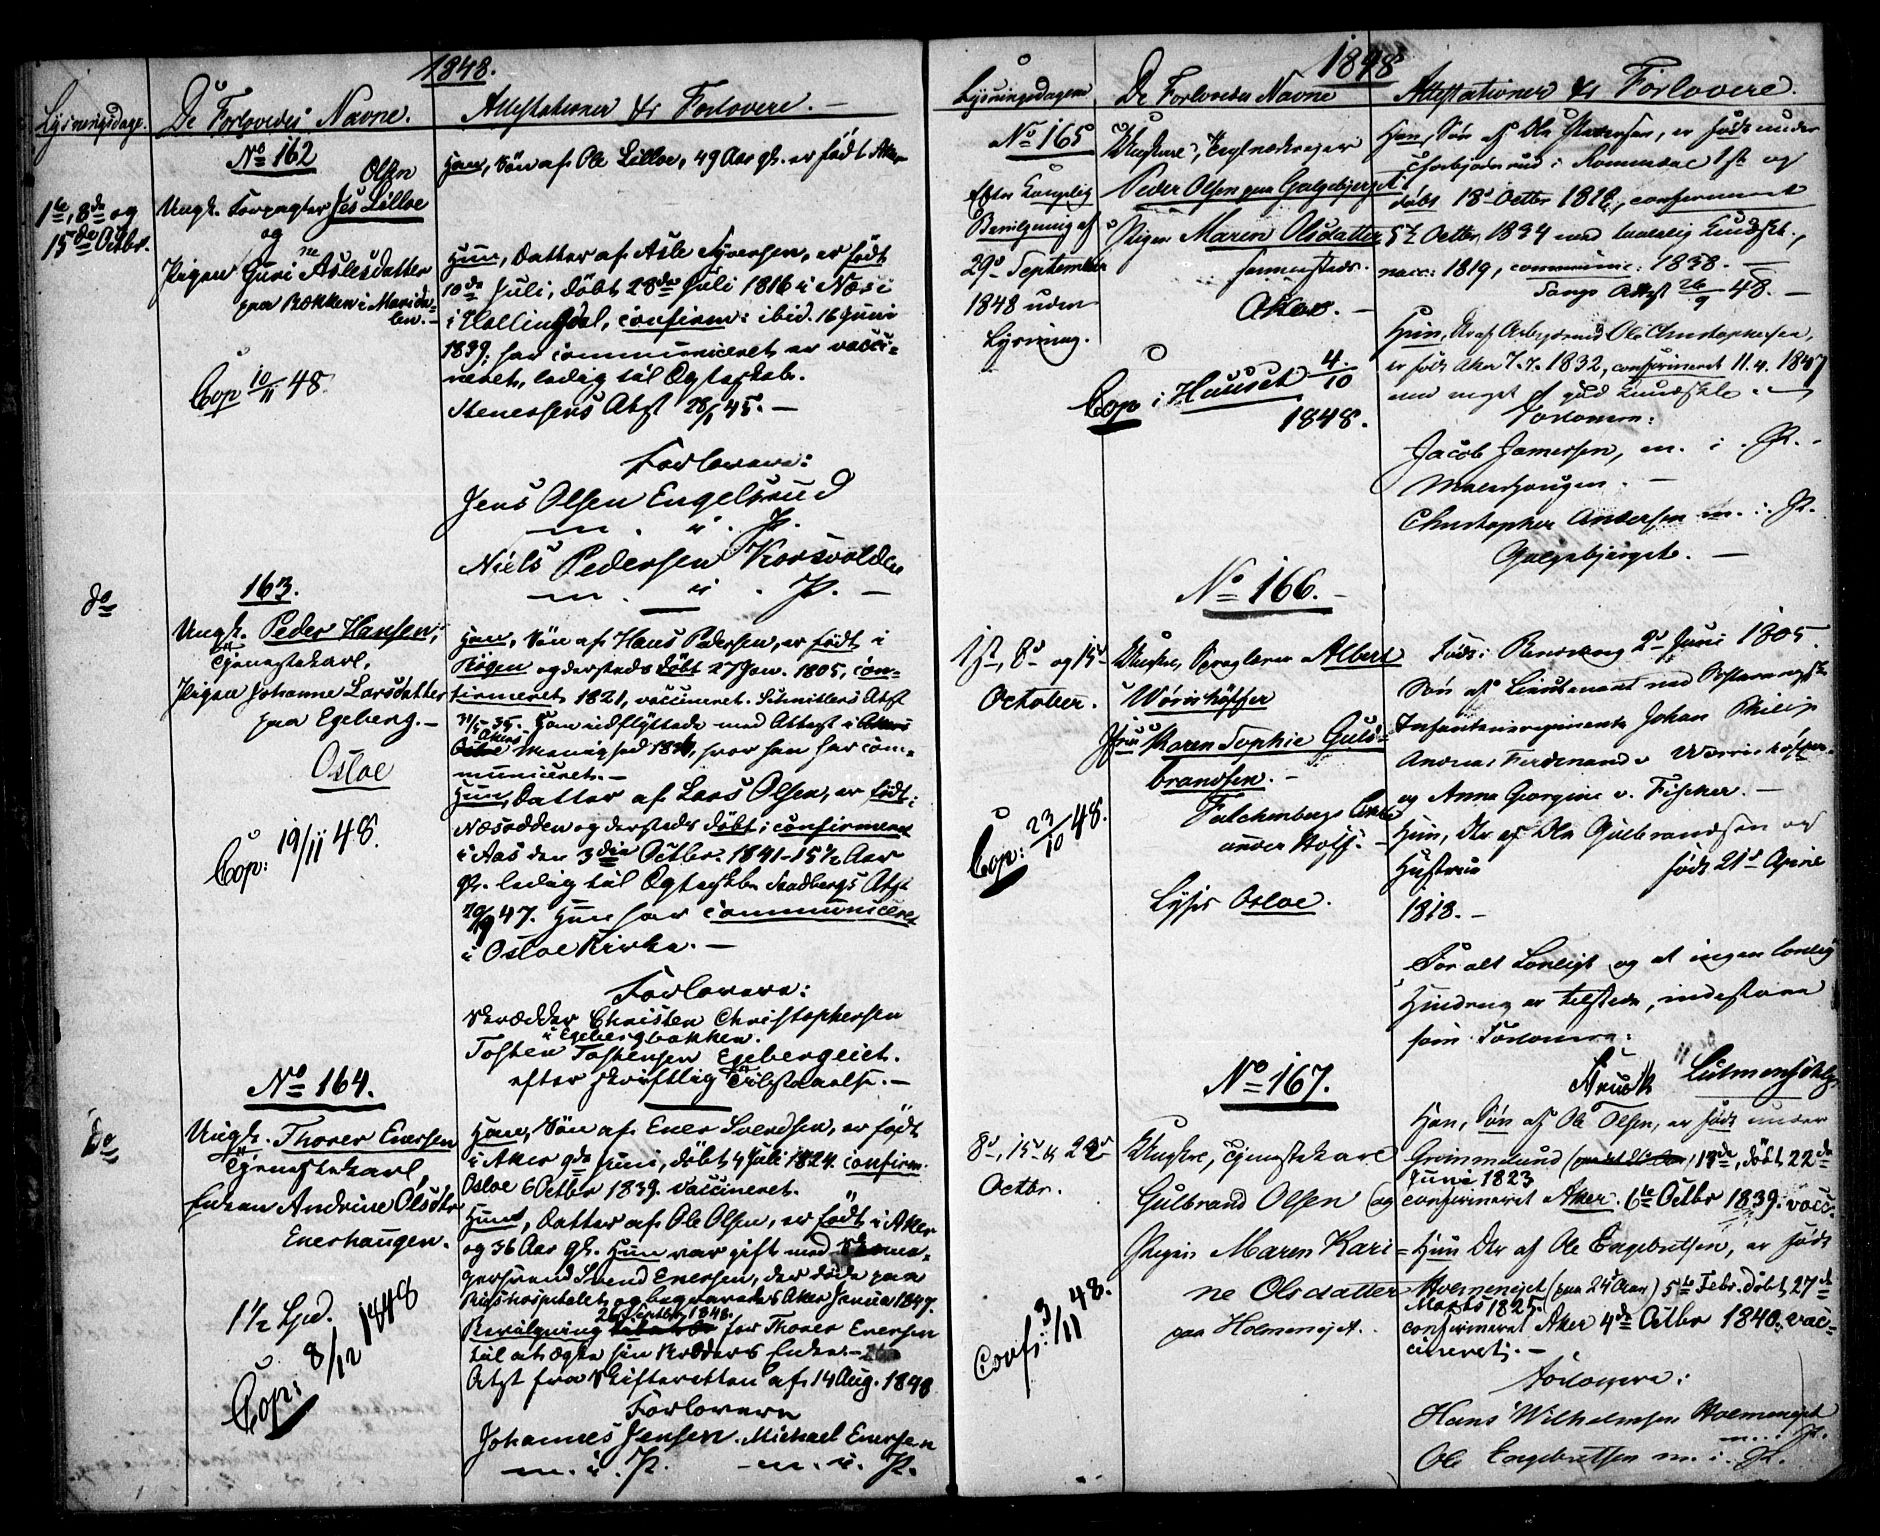 1848.
Lysningsdage.
De Forlovedes Navne.
Attestationer & Forlovere. —
No 162
1te, 8de og
15de Octbr.
Olsen
Ungk. Forpagter Jes Lilloe
og
Pigen Guri Aslesdatter
paa Bækken i Marida-
len. —
Cop 10/11 48.
Han, Søn af Ole Lilloe, 49 Aar gl. er født Aker
Hun, Datter af Asle Syversen, er født
10de Juli, døbt 28de Juli 1816 i Næs i
i Hallingdal, confirm: ibid. 16 Juni
1839; har communiceret er vacci-
neret, ledig til Ægteskab.
Stenersens Atst 28/1 45. —
Forlovere:
Jens Olsen Engelsrud
m. i. P.
Niels Pedersen Korsvolden
m. i. P. —
do
163.
Ungk. Peder Hansen,
Tjenestekarl,
Pigen Johanne Larsdatter
paa Egeberg. —
Osloe
Cop: 19/11 48.
Han, Søn af Hans Pedersen, er født i
Røgen og dersteds døbt 27 Jan. 1805, con-
firmeret 1821, vaccineret. Schnitlers Atst
35. Han udflyttede med Attest i Akers
Akers
Osloe Menighed, hvor han har com-
municeret. —
Hun, Datter af Lars Olsen, er født i
Næsodden og dersteds døbt; confirmeret
i Aas den 3die Octbr. 1841 - 15 1/2 Aar
gl. ledig til Ægteskb. Stadbergs Atst
47. Hun har communiceret
i Osloe Kirke. —
Forlovere:
Skrædder Christen Christophersen
i Egebergbakken.
Tosten Tostensen Egebergeiet.
efter skriftlig Tilstaaelse. —
do
No 164.
Ungk. Thorer Enersen
Tjenestekarl
Enken Andrine Olsdtr
Enerhaugen.
1 1/2 Spd.
Cop: 8/12 1848
Han, Søn af Ener Svendsen, er født
i Aker 9de Juni, døbt 4 Juli 1824. confirm.
Osloe 6 Octbr 1839. vaccineret.
Hun, Datter af Ole Olsen, er født i Aker
og 36 Aar gl. Hun var gift med Skoma-
gersvend Svend Enersen, der døde paa
Rigshospitalet og begravedes Aker Janua 1847.
26 Septbr 1848.
Bevilgning for Thorer Enersen
til at ægte sin Broders Enke. —
Atst fra Skifteretten af 14 Aug. 1848
Forlovere
Johannes Jensen. Michael Enersen
m. i. P. — m. i. P.
1848
Lysningsdagene
De Forlovedes Navne
Attestationer & Forlovere.
No 165
Efter Kongelig
Bevilgning af
29de September
1848 uden
Lysning.
Ungkarl,
Peder Olsen paa Galgebjerget
Pigen Maren Olsdatter
sammesteds.
Aker. —
Cop i Huuset 4/10
1848.
Han, Søn af Ola Pedersen, er født under
i Romsdal og
døbt 18 Octbr 1818, confirmeret
Octbr. 1834 med Kundsk.,
vacc: 1819, communic: 1838. —
Attest 26/9 48. —
Hun, Dr af Arbejdsmd Ole Christophersen,
er født Aker 7.7. 1832, confirmeret 11.4. 1847
med meget god Kundskb. —
Forlovere:
Jacob Jamersen, m. i. P. —
Malerhaugen. —
Christopher Andersen m. i. P.
Galgebjerget. —
No 166. —
1ste, 8de og 15de
October.
Ungkarl, Albert
Wörishöffer
Karen Sophie Guld-
brandsen. —
Falchenbergs
under Hols. —
Lyses Osloe.
Cop: 23/10 48.
Født i Rendsborg 2de Juni 1805
Søn af Lieutenant ved
Infanteriregimente Johan Philip
Andreas Ferdinand v Wörrishöffer
og Anna Georgine v. Fischer. —
Hun, Dtr af Ola Gulbrandsen og
Hustrue født 21de April
1818. —
For alt Lovligt og at ingen lovlig
Hindring er tilstede, indestaae
som Forlovere:
No 167.
8de, 15de & 22de
Octbr.
Ungkarl, Tjenestekarl
Gulbrand Olsen og
Pigen Maren Kari-
ne Olsdatter
paa Holmenejet.
Copl: 3/11 48.
Han, Søn af Ole Olsen, er født under
Grønmlund 13de, døbt 22de
Juni 1823
confirmeret Aker 6te Octbr 1839. vacc.
Hun Dtr af Ole Engebretsen, er født
Holmenejet (paa 24 Aar) 5te Febr. døbt 27de
Marts 1825.
confirmeret Aker 4de Octbr 1840. vac-
cineret. —
Forlovere:
Hans Wilhelmsen Holmenejet
m. i. P.
Ole Engebretsen m. i. P.